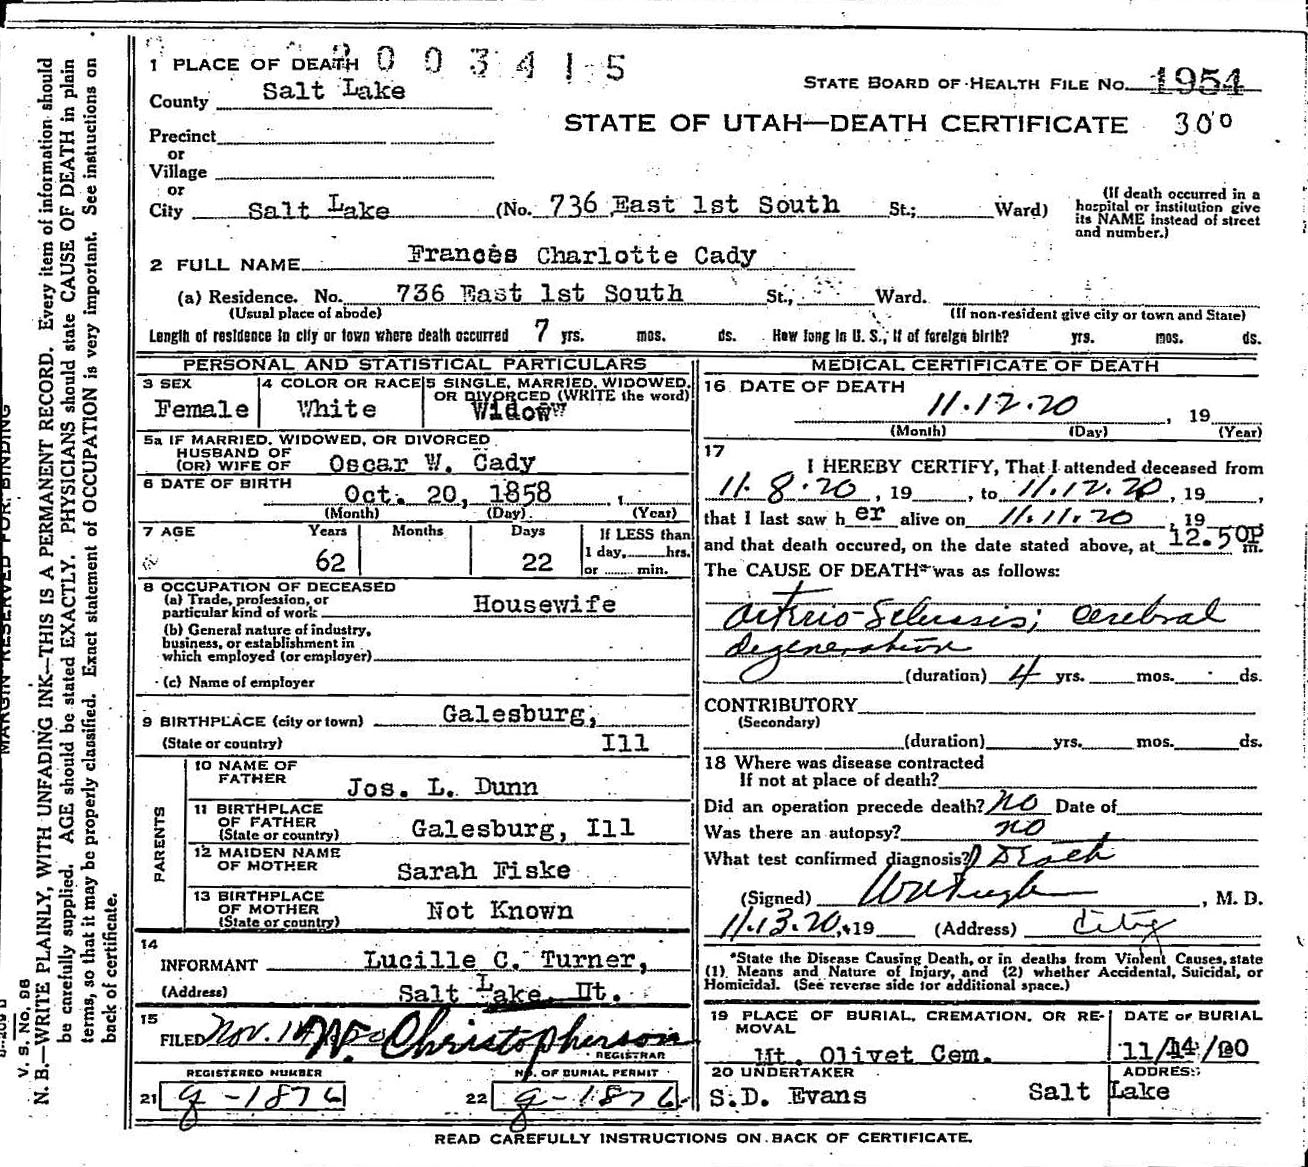 003415
1 PLACE OF DEATH
STATE BOARD OF HEALTH FILE No. 1954
County Salt Lake
STATE OF UTAH—DEATH CERTIFICATE 300
Precinct
or
Village
or
City Salt Lake (No. 736 East 1st South St.; Ward)
(If death occurred in a hospital or institution give its NAME instead of street and number.)
2 FULL NAME Frances Charlotte Cady
(a) Residence. No. 736 East 1st South St., Ward.
(Usual place of abode) (If non-resident give city or town and State)
Length of residence in city or town where death occurred 7 yrs. mos. ds. How long in U. S., if of foreign birth? yrs. mos. ds.
PERSONAL AND STATISTICAL PARTICULARS
3 SEX Female
4 COLOR OR RACE White
5 SINGLE, MARRIED, WIDOWED, OR DIVORCED (WRITE the word) Widow
5a IF MARRIED, WIDOWED, OR DIVORCED
HUSBAND OF
(OR) WIFE OF Oscar W. Cady
6 DATE OF BIRTH Oct. 20, 1858
(Month) (Day) (Year)
7 AGE Years Months Days If LESS than
62 22 1 day, hrs.
or min.
8 OCCUPATION OF DECEASED
(a) Trade, profession, or
particular kind of work Housewife
(b) General nature of industry,
business, or establishment in
which employed (or employer)
(c) Name of employer
9 BIRTHPLACE (city or town) Galesburg,
(State or country) Ill
PARENTS
10 NAME OF
FATHER Jos. L. Dunn
11 BIRTHPLACE
OF FATHER
(State or country) Galesburg, Ill
12 MAIDEN NAME
OF MOTHER Sarah Fiske
13 BIRTHPLACE
OF MOTHER
(State or country) Not Known
14
INFORMANT Lucille C. Turner,
(Address) Salt Lake, Ut.
15
FILED Nov. 14 W. Christopherson
REGISTRAR
REGISTERED NUMBER No. OF BURIAL PERMIT
21 g-1876 22 g-1876
MEDICAL CERTIFICATE OF DEATH
16 DATE OF DEATH
11.12.20, 19
(Month) (Day) (Year)
17
I HEREBY CERTIFY, That I attended deceased from
11.8.20, 19, to 11.12.20, 19,
that I last saw her alive on 11.11.20, 19
and that death occured, on the date stated above, at 12.50P m.
The CAUSE OF DEATH* was as follows:
Arterio-Sclerosis; cerebral
degeneration
(duration) 4 yrs. mos. ds.
CONTRIBUTORY
(Secondary)
(duration) yrs. mos. ds.
18 Where was disease contracted
If not at place of death?
Did an operation precede death? No Date of
Was there an autopsy? no
What test confirmed diagnosis? Death
(Signed) , M. D.
11.13.20, 19 (Address) City
*State the Disease Causing Death, or in deaths from Violent Causes, state
(1) Means and Nature of Injury, and (2) whether Accidental, Suicidal, or
Homicidal. (See reverse side for additional space.)
19 PLACE OF BURIAL, CREMATION, OR RE-
MOVAL DATE OF BURIAL
Mt. Olivet Cem. 11/14/20
20 UNDERTAKER ADDRESS
S.D. Evans Salt Lake
READ CAREFULLY INSTRUCTIONS ON BACK OF CERTIFICATE.
MARGIN RESERVED FOR BINDING
V. S. No. 98
N. B.—WRITE PLAINLY, WITH UNFADING INK—THIS IS A PERMANENT RECORD. Every item of information should
be carefully supplied. AGE should be stated EXACTLY. PHYSICIANS should state CAUSE OF DEATH in plain
terms, so that it may be properly classified. Exact statement of OCCUPATION is very important. See instuctions on
back of certificate.